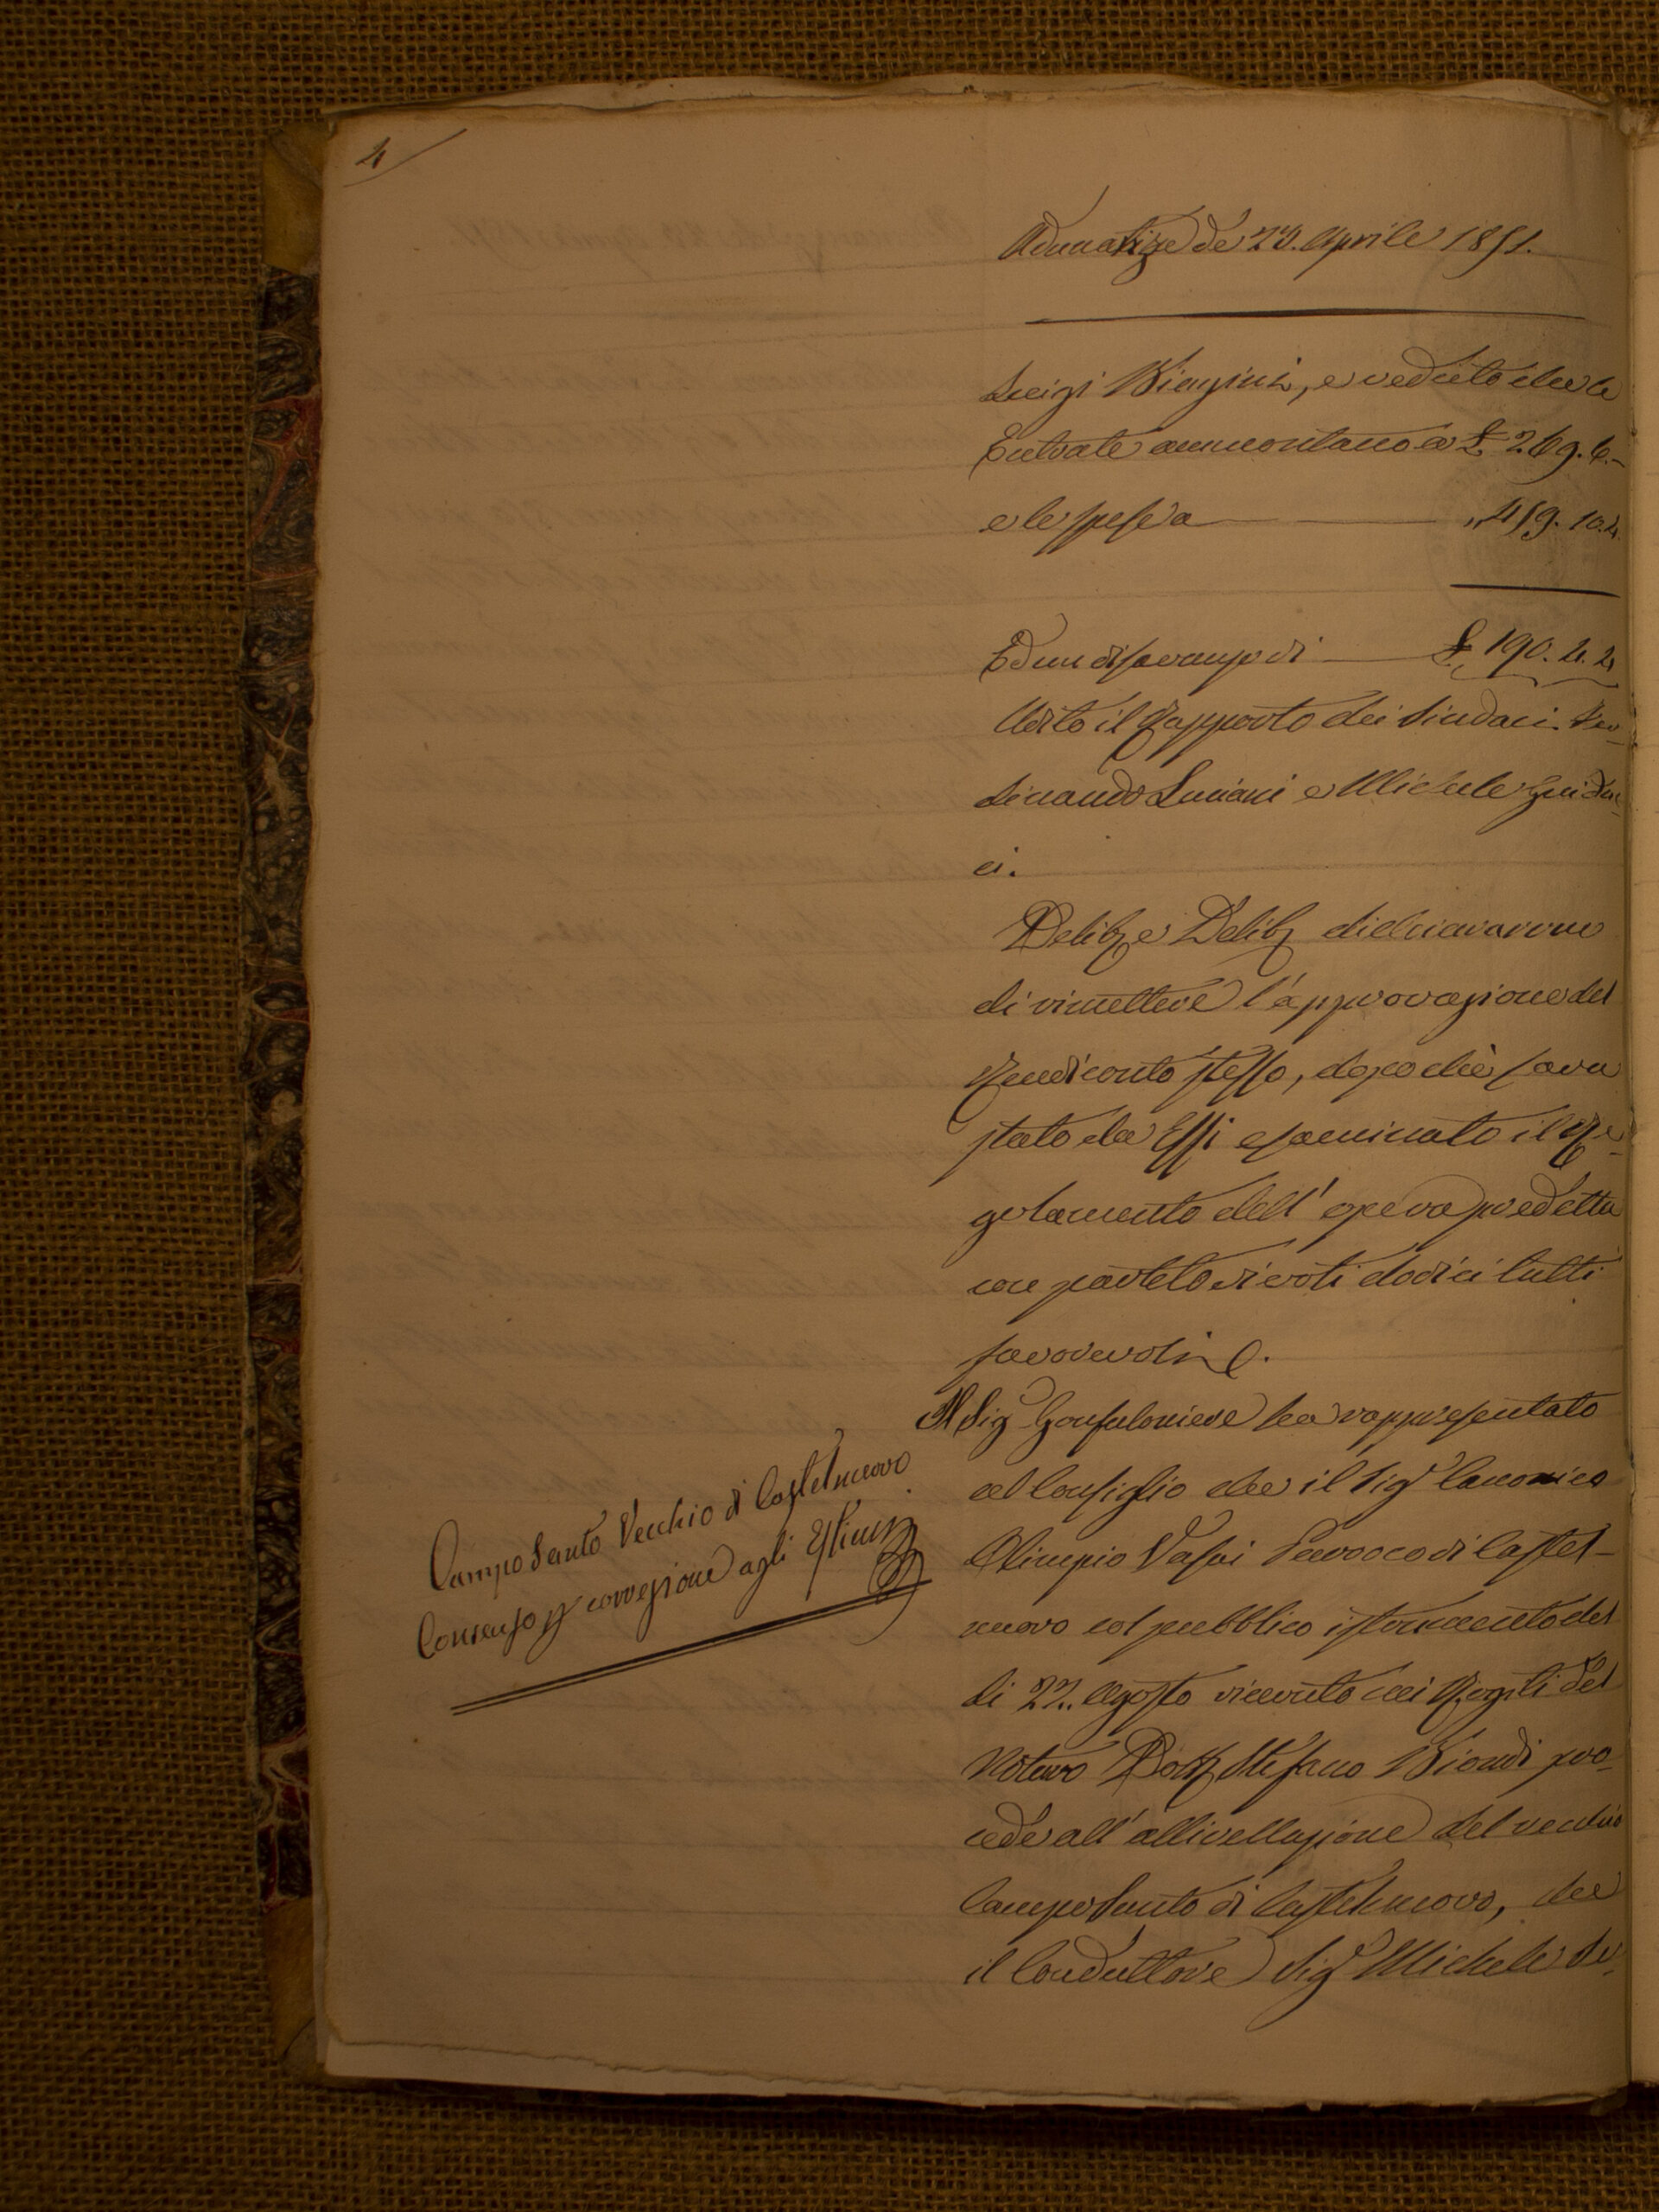 4
Adunanza de' 23. Aprile 1851.
Luigi Biagini, e veduto che le
Entrate ammontano a £ 269. 6.-
e le spese a „ 459. 10.4.
Ed un disavanzo di £ 190. 4. 4
Udito il Rapporto dei Sindaci Fer-
dinando Luciani e Michele Guiduc-
ci.
Delib e Delib dichiararono
di rimettere l'approvazione del
Rendiconto stesso, dopo che sara
stato da Essi esaminato il Re-
golamento dell' opera predetta
con partito di voti dodici tutti
favorevoli
Il Sig Gonfaloniere ha rappresentato
al Consiglio che il Sig Canonico
Olimpio Vasai Parroco di Castel-
nuovo col pubblico istrumento del
di 22. Agosto ricevuto nei Rogiti del
Notaro Dott Stefano Biondi pro-
cedè all' allivellazione del vecchio
Campo Santo di Castelnuovo, che
il Conduttore Sig Michele Se-
Campo Santo Vecchio di Castelnuovo.
Consenso p correzione agli Estimi